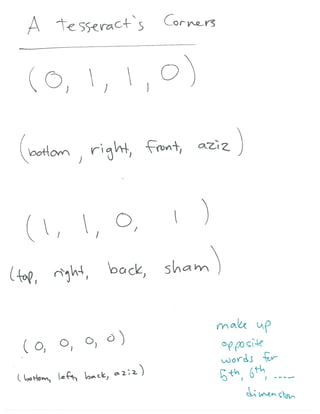 A tesseract's Corners
(0, 1, 1, 0)
(bottom, right, front, aziz)
(1, 1, 0, 1)
(top, right, back, sham)
(0, 0, 0, 0)
(bottom, left, back, aziz)
make up
opposite
words for
5th, 6th, .....
dimension